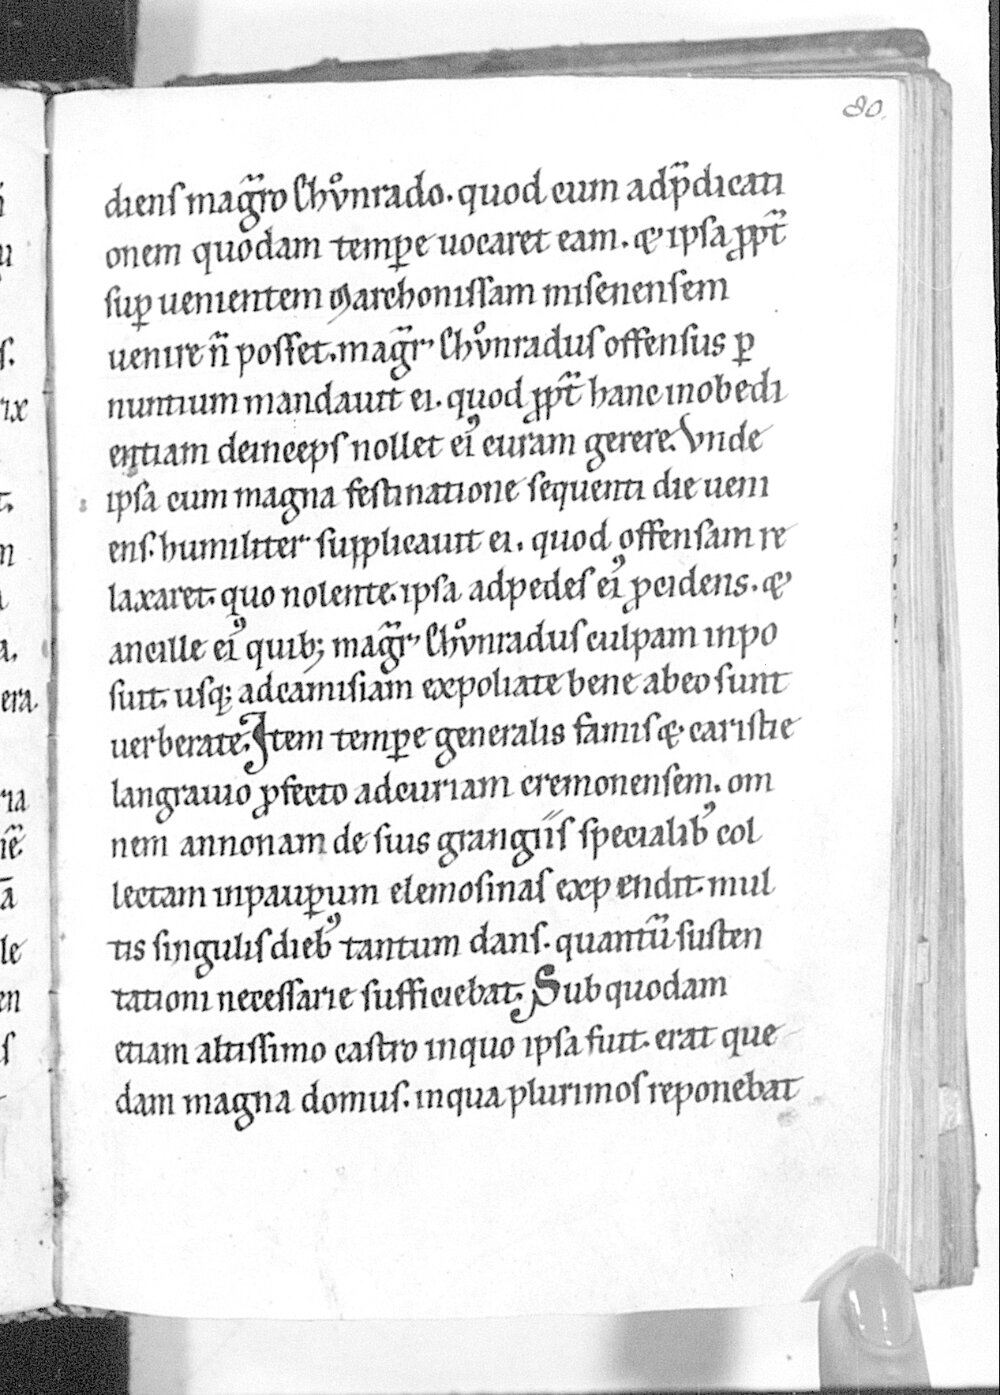 80.
dienſ mag̅ro Chv̊nrado. quod cum adp̅dicati
onem quodam temꝑe uocaret eam. ⁊ ipsa ꝓpt̅
ſuꝑ uenientem Marchoniſſam misenensem
uenire n̅ poſſet. mag̅r Chv̊nradus offenſus ꝑ
nuntium mandauit ei. quod ꝓpt̅ hanc inobedi
entiam deincepſ nollet ei᾽ curam gerere. Vnde
ipsa cum magna feſtinatione ſequenti die ueni
enſ. humiliter ſupplicauit ei. quod offenſam re
laxaret. quo nolente. ipſa adpedeſ ei᾽ ꝓcidens. ⁊
ancille ei᾽ quib; mag̅r Chv̊nraduſ culpam inpo
ſuit. uſq; adcamiſiam expoliate bene abeo ſunt
uerberate. Item temꝑe generalis famiſ ⁊ cariſtie
langrauio ꝓfecto adcuriam cremonenſem. om
nem annonam de ſuis grangiiſ ſpecialib᾽ col
lectam inpauꝑum elemoſinaſ expendit. mul
tis ſinguliſ dieb᾽ tantum danſ. quantu̅ ſuſten
tationi neceſſarie ſufficiebat. Sub quodam
etiam altiſſimo caſtro inquo ipſa fuit. erat que
dam magna domuſ. inqua plurimoſ reponebat